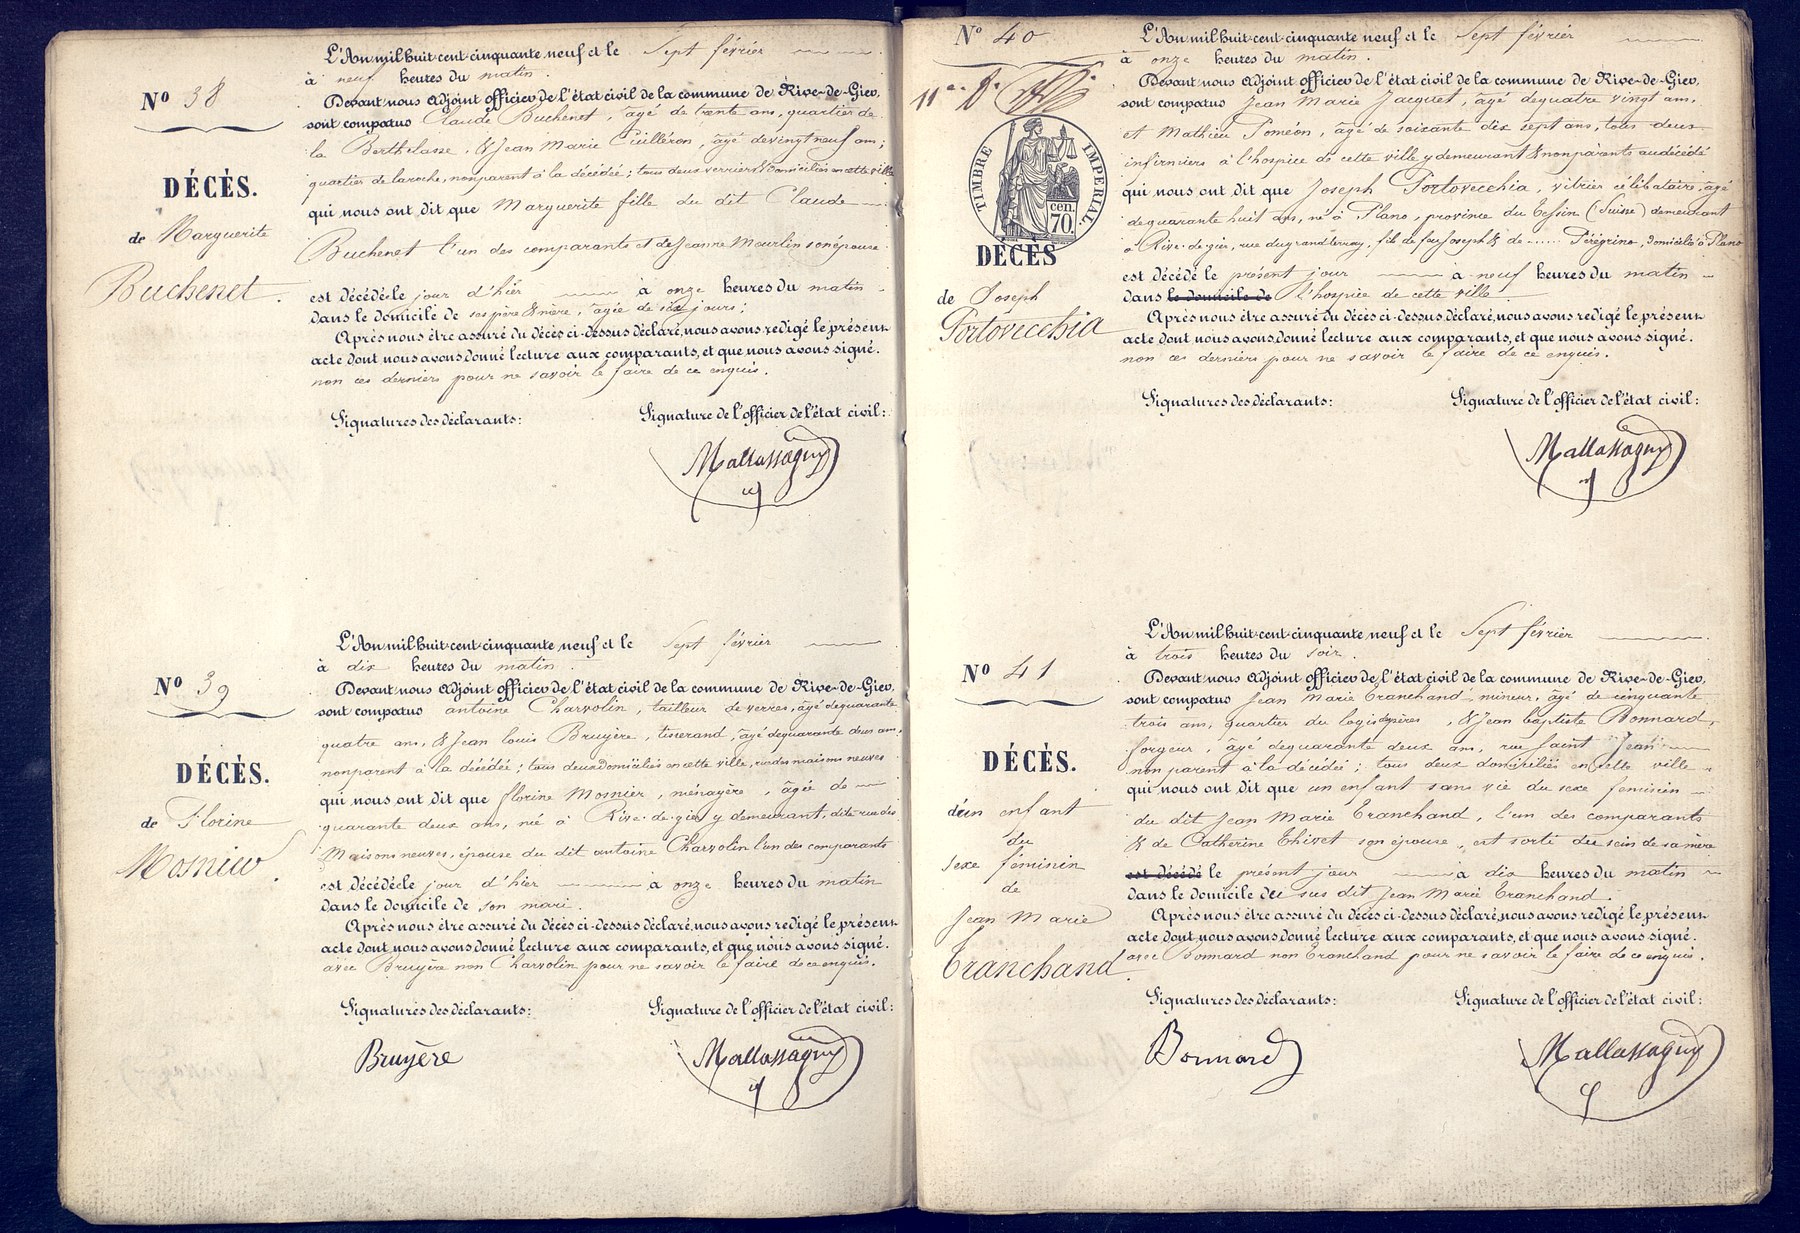 L'An mil huit cent cinquante neuf et le Sept février
à neuf heures du matin.
Nº 38
Devant nous Adjoint officier de l'état civil de la commune de Rive-de-Gier,
sont comparus Claude Buchenet, âgé de trente ans, quartier de
la Berthelasse, & Jean Marie Cuilléron, âgé de vingt neuf ans;
quartier de laroche, non parent à la décédée; tous deux verriers & domiciliés en cette ville
DÉCÈS.
qui nous ont dit que Marguerite fille du dit Claude
de Marguerite
Buchenet l'un des comparants et de Jeanne Mourlin son épouse
Buchenet.
est décédée le jour d'hier à onze heures du matin
dans le domicile de ses père & mère, âgée de six jours;
Après nous être assuré du décès ci-dessus déclaré, nous avons redigé le présent
acte dont nous avons donné lecture aux comparants, et que nous avons signé.
non ces derniers pour ne savoir le faire de ce enquis.
Signatures des déclarants:
Signature de l'officier de l'état civil:
Mallassagny
L'An mil huit cent cinquante neuf et le Sept février
à dix heures du matin.
Nº 39
Devant nous Adjoint officier de l'état civil de la commune de Rive-de-Gier,
sont comparus antoine Charvolin, tailleur de verres, âgé de quarante
quatre ans, & Jean louis Bruyère, tisserand, âgé de quarante deux ans,
non parent à la décédée; tous deux domiciliés en cette ville, rue des maisons neuves
DÉCÈS.
qui nous ont dit que florine Mosnier, ménagère, âgée de
de Florine
quarante deux ans, née à Rive-de-gier y demeurant, dite rue des
Maisons neuves, épouse du dit antoine Charvolin l'un des comparants
Mosnier.
est décédée le jour d'hier à onze heures du matin
dans le domicile de son mari.
Après nous être assuré du décès ci-dessus déclaré, nous avons redigé le présent
acte dont nous avons donné lecture aux comparants, et que nous avons signé.
avec Bruyère non Charvolin pour ne savoir le faire de ce enquis.
Signatures des déclarants:
Signature de l'officier de l'état civil:
Bruyère
Mallassagny
Nº 40
L'An mil huit cent cinquante neuf et le Sept février
à onze heures du matin.
Devant nous Adjoint officier de l'état civil de la commune de Rive-de-Gier,
sont comparus Jean Marie Jacquet, âgé de quatre vingt ans,
et Mathieu Poméon, âgé de soixante dix sept ans, tous deux
infirmiers à l'hospice de cette ville y demeurant & non parents au décédé
TIMBRE IMPERIAL.
cen.
70.
qui nous ont dit que Joseph Portovecchia, vitrier célibataire, âgé
de quarante huit ans, né à Plano, province du Tessin (Suisse) demeurant
à Rive-de-gier, rue du grand terray, fils de feu Joseph & de ...... Pérégrino, domicilié à Plano
DÉCÈS
est décédé le présent jour à neuf heures du matin
de Joseph
dans le domicile de l'hospice de cette ville
Portovecchia
Après nous être assuré du décès ci-dessus déclaré, nous avons redigé le présent
acte dont nous avons donné lecture aux comparants, et que nous avons signé.
non ces derniers pour ne savoir le faire de ce enquis.
Signatures des déclarants:
Signature de l'officier de l'état civil:
Mallassagny
L'An mil huit cent cinquante neuf et le Sept février
à trois heures du soir.
Nº 41
Devant nous Adjoint officier de l'état civil de la commune de Rive-de-Gier,
sont comparus Jean Marie Tranchand, mineur, âgé de cinquante
trois ans, quartier du logis des pères, & Jean baptiste Bonnard,
forgeur, âgé de quarante deux ans, rue Saint Jean
DÉCÈS.
non parent à la décédée; tous deux domiciliés en cette ville
qui nous ont dit que un enfant sans vie du sexe feminin
d'un enfant
du dit Jean Marie Tranchand, l'un des comparants
du
& de Catherine Thivet son épouse, est sorti du sein de sa mère
sexe féminin
est décédé le présent jour à dix heures du matin
de
dans le domicile de sus dit Jean Marie Tranchand.
Jean Marie
Après nous être assuré du décès ci-dessus déclaré, nous avons redigé le présent
acte dont nous avons donné lecture aux comparants, et que nous avons signé.
Tranchand.
avec Bonnard non Tranchand pour ne savoir le faire de ce enquis.
Signatures des déclarants:
Signature de l'officier de l'état civil:
Bonnard
Mallassagny